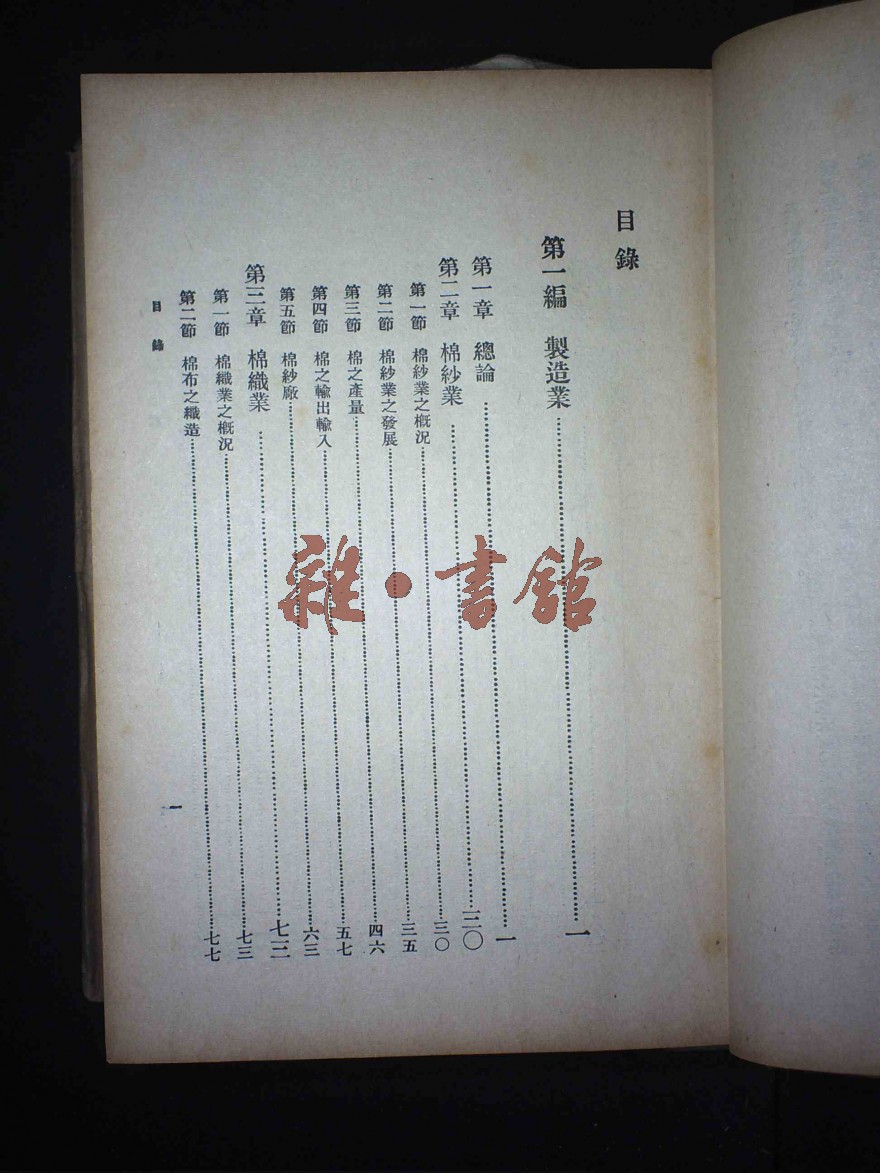 目錄
第一編 製造業……一
第一章 總論……一
第二章 棉紗業……三〇
第一節 棉紗業之槪況……三〇
第二節 棉紗業之發展……三五
第三節 棉之產量……四六
第四節 棉之輸出輸入……五七
第五節 棉紗廠……六三
第三章 棉織業……七三
第一節 棉織業之槪況……七三
第二節 棉布之織造……七七
目錄 一
雜·書館